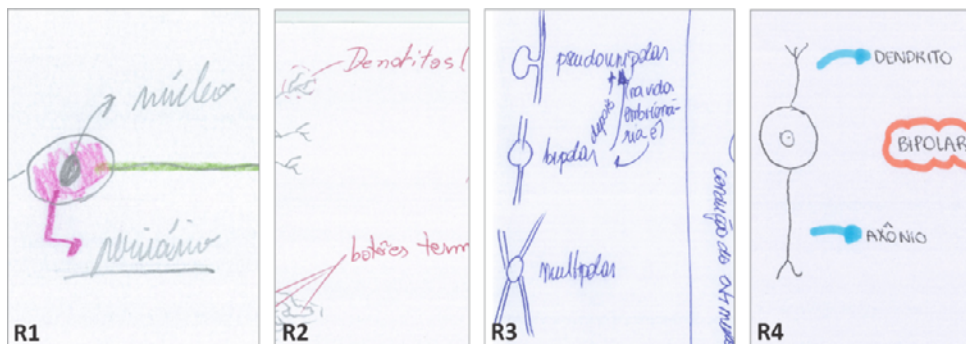 núcleo
pericário
R1
Dendritos (
botões term
R2
pseudounipolar
depois
(na vida
embrioná-
ria é)
bipolar
multipolar
condução do
R3
DENDRITO
BIPOLAR
AXÔNIO
R4